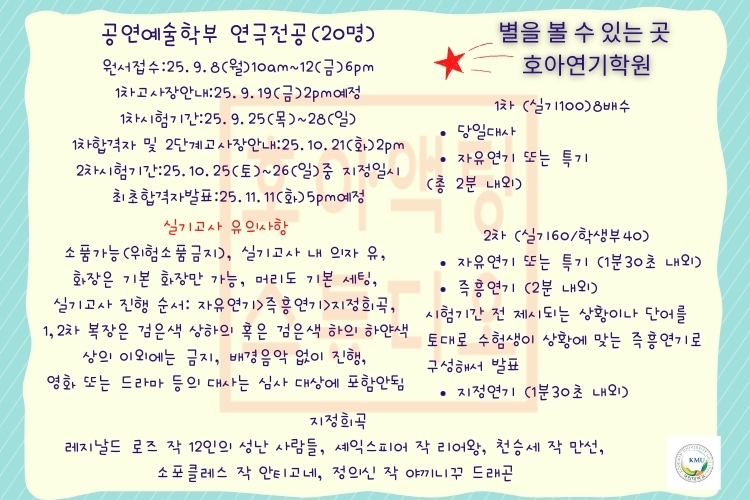 공연예술학부 연극전공(20명)
원서접수:25.9.8(월)10am~12(금)6pm
1차고사장안내:25.9.19(금)2pm예정
1차시험기간:25.9.25(목)~28(일)
1차합격자 및 2단계고사장안내:25.10.21(화)2pm
2차시험기간:25.10.25(토)~26(일)중 지정일시
최초합격자발표:25.11.11(화)5pm예정
실기고사 유의사항
소품가능(위험소품금지), 실기고사 내 의자 유,
화장은 기본 화장만 가능, 머리도 기본 세팅,
실기고사 진행 순서: 자유연기>즉흥연기>지정희곡,
1,2차 복장은 검은색 상하의 혹은 검은색 하의 하얀색
상의 이외에는 금지, 배경음악 없이 진행,
영화 또는 드라마 등의 대사는 심사 대상에 포함안됨
별을 볼 수 있는 곳
호아연기학원
1차 (실기100)8배수
• 당일대사
• 자유연기 또는 특기
(총 2분 내외)
2차 (실기60/학생부40)
• 자유연기 또는 특기 (1분30초 내외)
• 즉흥연기 (2분 내외)
시험기간 전 제시되는 상황이나 단어를
토대로 수험생이 상황에 맞는 즉흥연기로
구성해서 발표
• 지정연기 (1분30초 내외)
지정희곡
레지날드 로즈 작 12인의 성난 사람들, 셰익스피어 작 리어왕, 천승세 작 만선,
소포클레스 작 안티고네, 정의신 작 야끼니꾸 드래곤
호아액팅
스튜디오
KMU